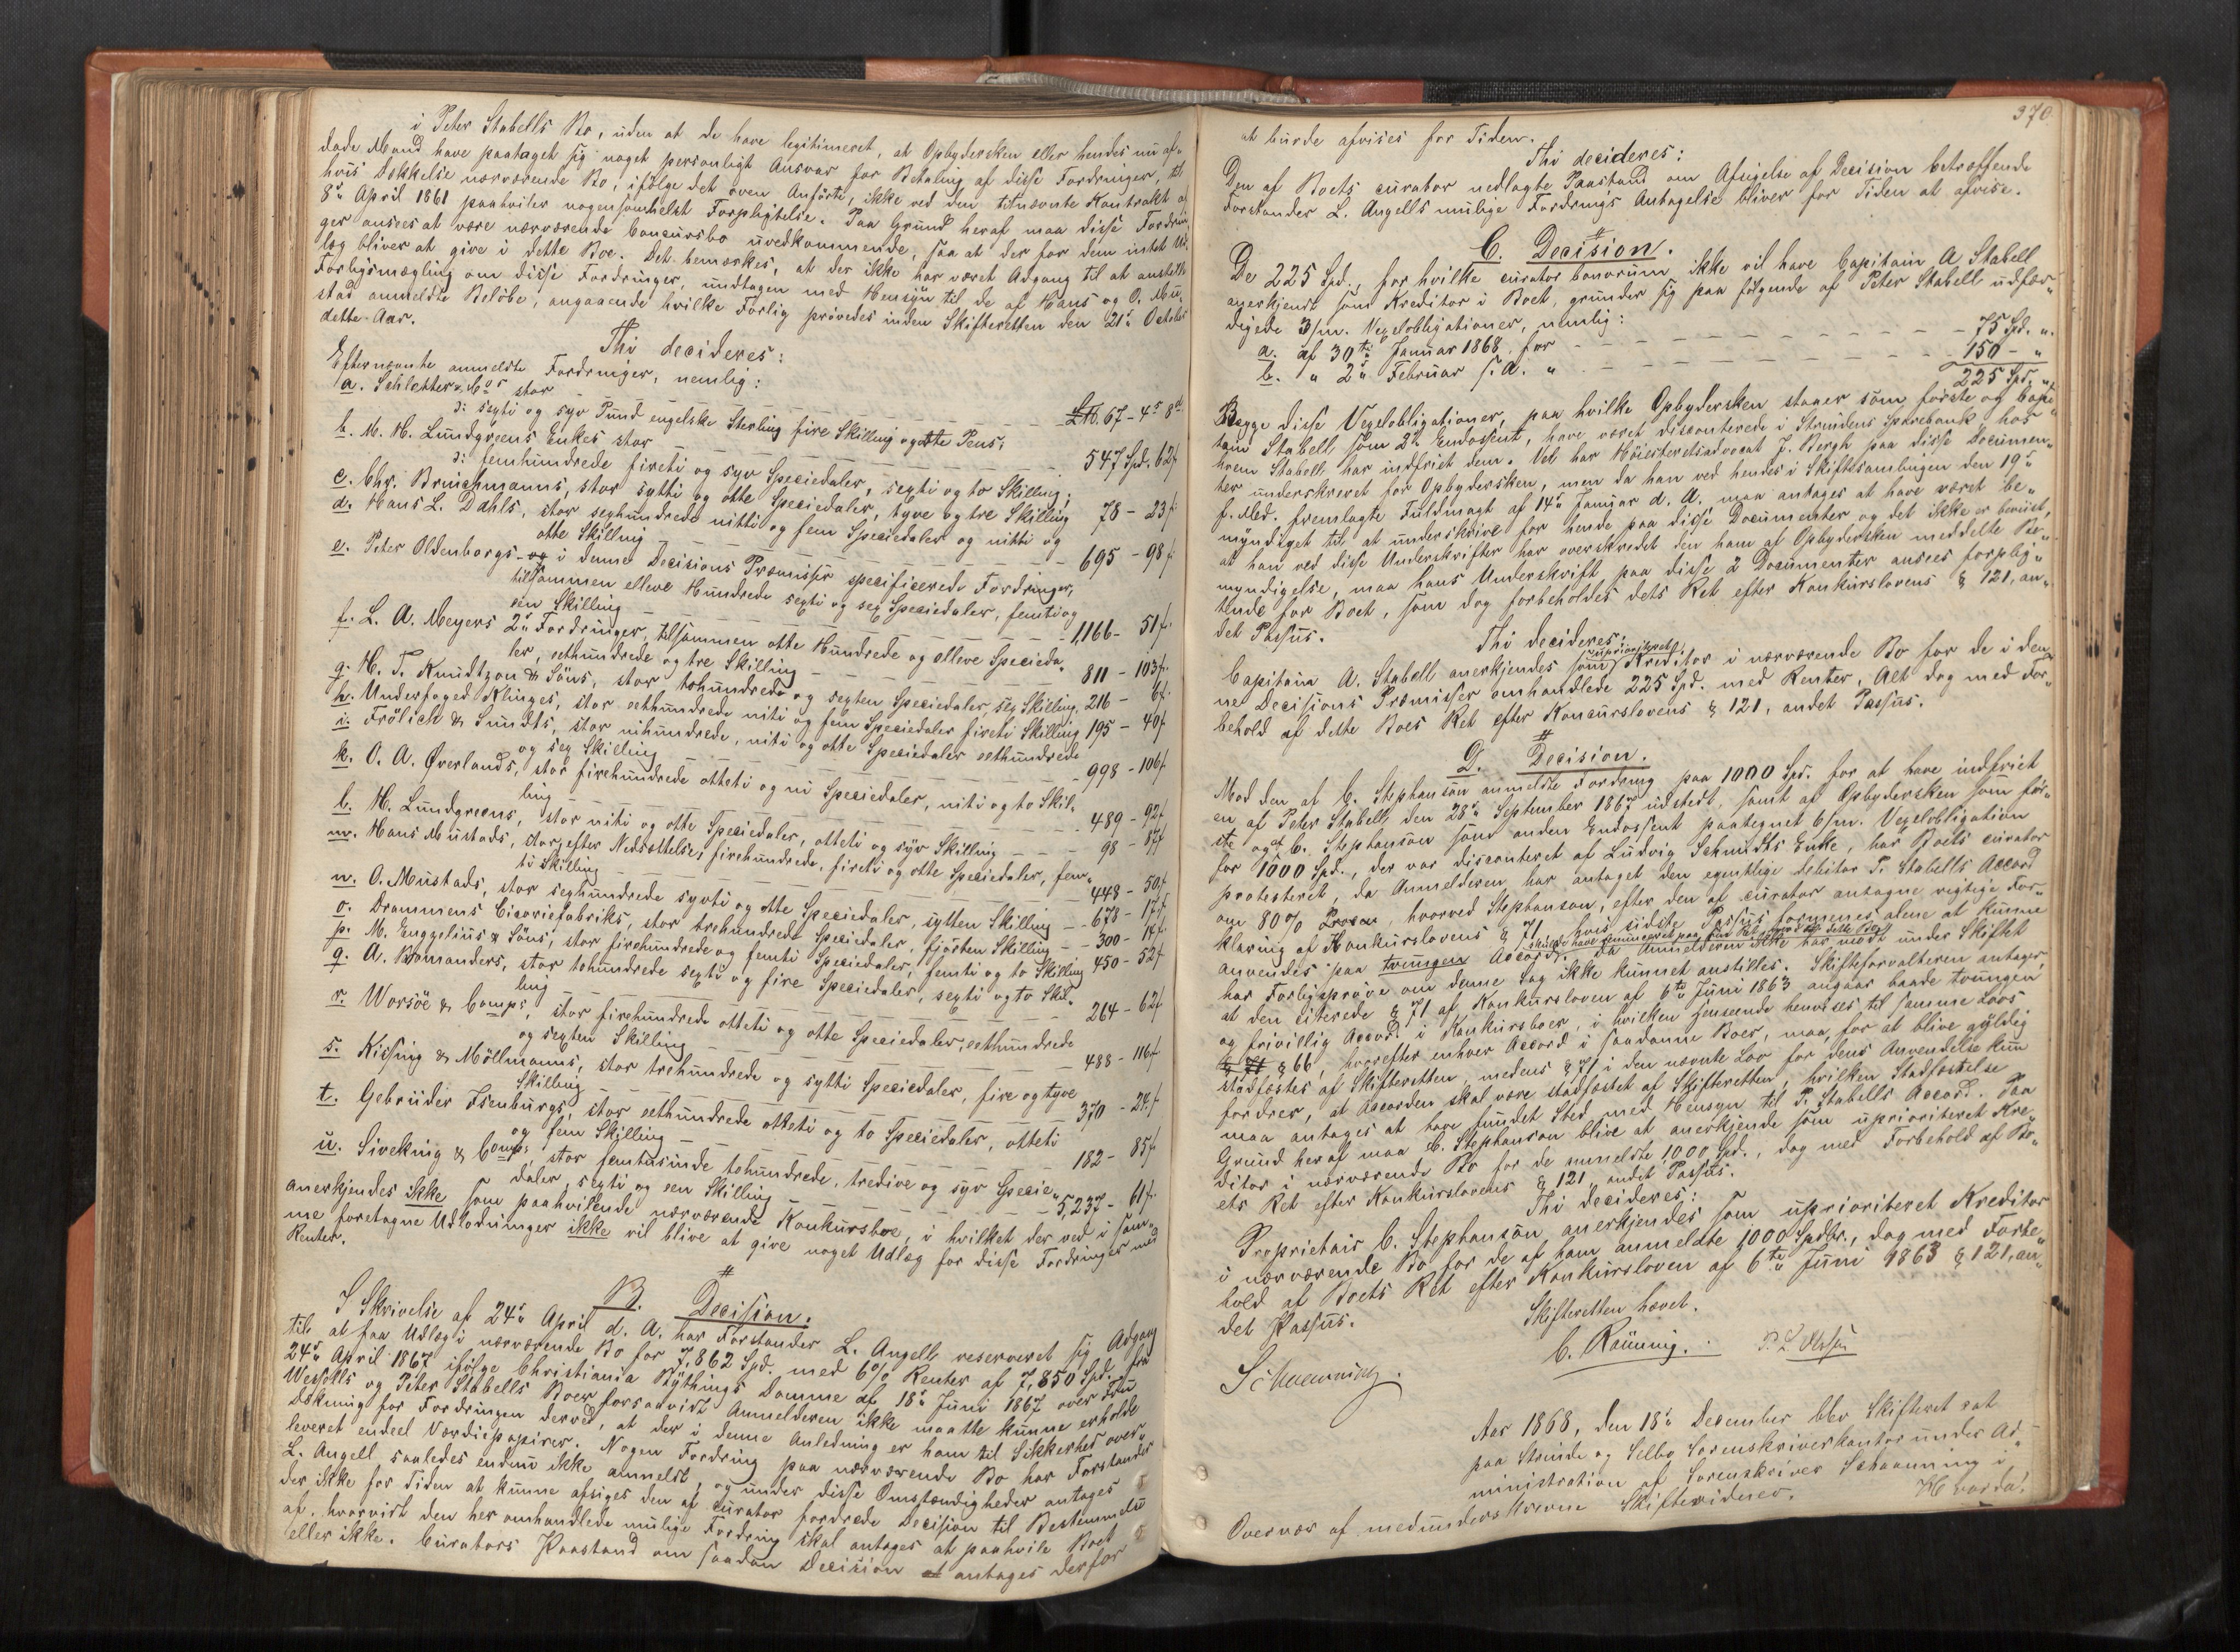 i Peter Stabells Bo, uden at de have legitimeret, at Opbydersken eller hendes nu af-
døde Mand have paataget sig noget personligt Ansvar for Betaling af disse Fordringer, til
hvis Dækkelse nærværende Bo, ifølge det oven Anførte, ikke ved den titnævnte Kontrakt af
8de April 1861 paahviler nogensomhelst Forpligtelse. Paa Grund heraf maa disse Fordrin-
ger ansees at være nærværende Concursbo uvedkommende, saa at der for dem intet Ud-
læg bliver at give i dette Boe. Det bemærkes, at der ikke har været Adgang til at anstille
Forligsmægling om disse Fordringer, undtagen med Hensyn til de af Hans og O. Mu-
stad anmeldte Beløbe, angaaende hvilke Forlig prøvedes inden Skifteretten den 21de October
dette Aar.
Thi decideres:
Efternævnte anmeldte Fordringer, nemlig:
a. Schletter & Cos stor
ɔ: sexti og syv Pund engelske Sterling fire Skilling og otte Pens; £ 67 - 4s 8d
b. M. H. Lundgreens Enkes stor
ɔ: femhundrede fireti og syv Speciedaler, sexti og to Skilling; 547 Spd. 62 s
c. Chr. Bruichmanns, stor sytti og otte Speciedaler, tyve og tre Skilling 78 - 23 s
d. Hans L. Dahls, stor sexhundrede nitti og fem Speciedaler og nitti og
otte Skilling 695 - 98 s
e. Peter Oldenborgs og i denne Decisions Præmisser specificerede Fordringer,
tilsammen elleve Hundrede sexti og sex Speciedaler, femti og
een Skilling 1,166 - 51 s
f. L. A. Meyers 2de Fordringer, tilsammen otte Hundrede og elleve Specieda-
ler, eethundrede og tre Skilling 811 - 103 s
g. H. T. Knudtzon & Søns, stor tohundrede og sexten Speciedaler, sex Skilling, 216 - 6 s
h. Underfoged Klinges, stor eethundrede niti og fem Speciedaler fireti Skilling 195 - 40 s
i. Frölich & Sundts, stor nihundrede, niti og otte Speciedaler eethundrede
og sex Skilling 998 - 106 s
k. O. A. Øverlands, stor firehundrede otteti og ni Speciedaler, niti og to Skil-
ling 489 - 92 s
l. H. Lundgreens, stor niti og otte Speciedaler, otteti og syv Skilling 98 - 87 s
m. Hans Mustads, stor, efter Nedsættelse, firehundrede, fireti og otte Speciedaler, fem-
ti Skilling 448 - 50 s
n. O. Mustads, stor sexhundrede sytti og otte Speciedaler, sytten Skilling 678 - 17 s
o. Drammens Cicoriefabriks, stor trehundrede Speciedaler, fjorten Skilling 300 - 14 s
p. M. Enggelius & Søns, stor firehundrede og femti Speciedaler, femti og to Skilling 450 - 52 s
q. A. Romanders, stor tohundrede sexti og fire Speciedaler, sexti og to Skil-
ling 264 - 62 s
r. Worsöe & Comps, stor firehundrede otteti og otte Speciedaler, eethundrede
og sexten Skilling 488 - 116 s
s. Kissing & Möllmanns, stor trehundrede og sytti Speciedaler, fire og tyve
Skilling 370 - 24 s
t. Gebrüder Isenburgs, stor eethundrede otteti og to Speciedaler, otteti
og fem Skilling 182 - 85 s
u. Siveking & Comp:, stor femtusinde tohundrede, tredive og syv Specie-
daler, sexti og een Skilling 5,237 - 61 s
anerkjendes ikke som paahvilende nærværende Konkursboe, i hvilket der ved i sam-
me foretagne Udlodninger ikke vil blive at give noget Udlæg for disse Fordringer med
Renter.
B. Decision.
I Skrivelse af 24de April d. A. har Forstander L. Angell reserveret sig Adgang
til at faa Udlæg i nærværende Bo for 7,862 Spd. med 6% Renter af 7,850 Spd. fra
24de April 1867 ifølge Christiania Bythings Domme af 18de Juni 1867 over Fru
Wessells og Peter Stabells Boer forsaavidt Anmelderen ikke maatte kunne erholde
Dækning for Fordringen derved, at der i denne Anledning er ham til Sikkerhed over-
leveret endeel Værdiepapirer. Nogen Fordring paa nærværende Bo har Forstander
L. Angell saaledes endnu ikke anmeldt, og under disse Omstændigheder antages
der ikke for Tiden at kunne afsiges den af Curator fordrede Decision til Bestemmelse
af, hvorvidt den her omhandlede mulige Fordring skal antages at paahvile Boet
eller ikke. Curators Paastand om saadan Decision at antages derfor
370
at burde afvises for Tiden.
Thi decideres:
Den af Boets curator nedlagte Paastand om Afsigelse af Decision betræffende
Forstander L. Angells mulige Fordrings Antagelse bliver for Tiden at afvise.
C. Decision.
De 225 Spd., for hvilke curator bonorum ikke vil have Capitain A Stabell
anerkjendt som Kreditor i Boet, grunder sig paa følgende af Peter Stabell udfær-
digede 3/m. Vexelobligationer, nemlig:
a. af 30te Januar 1868 for 75 Spd. "
b. " 2de Februar s. A. " 150 - "
225 Spd. "
Begge disse Vexelobligationer, paa hvilke Opbydersken staaer som første og Capi-
tain Stabell som 2de Endossent, have været disconterede i Strindens Sparebank hos
hvem Stabell har indfriet dem. Vel har Høiesteretsadvocat J. Bergh paa disse Documen-
ter underskrevet for Opbydersken, men da han ved hendes i Skiftesamlingen den 19de
f. Md. fremlagte Fuldmagt af 14de Januar d. A. maa antages at have været be-
myndiget til at underskrive for hende paa disse Documenter og det ikke er beviist,
at han ved disse Underskrifter har overskredet den ham af Opbydersken meddelte Be-
myndigelse, maa hans Underskrift paa disse 2 Documenter ansees forplig-
tende for Boet, som dog forbeholdes dets Ret efter Konkurslovens § 121, an-
det Passus.
Thi decideres:
uprioriteret
Capitain A. Stabell anerkjendes som Kreditor i nærværende Bo for de i den-
ne Decisions Præmisser omhandlede 225 Spd. med Renter, Alt dog med For-
behold af dette Boes Ret efter Koncurslovens § 121, andet Passus.
D. Decision.
Mod den af C. Stephanson anmeldte Fordring paa 1000 Spd. for at have indfriet
en af Peter Stabell den 28de September 1867 udstedt, samt af Opbydersken som før-
ste og af C. Stephanson som anden Endossent paategnet 6/m. Vexelobligation
for 1000 Spd., der var disconteret af Ludvig Schmidts Enke, har Boets curator
protesteret, da Anmelderen har antaget den egentlige debitor P. Stabells Accord
om 80% Procen, hvorved Stephanson, efter den af curator antagne rigtige For-
klaring af Konkurslovens § 71, hvis sidste Passus formenes alene at kunne
anvendes paa tvungen Accord, skulde have renunceret paa sin Ret mod dette Bo. Da Anmelderen ikke har mødt under Skiftet
har Forligsprøve om denne Sag ikke kunnet anstilles. Skifteforvalteren antager,
at den citerede § 71 af Konkursloven af 6te Juni 1863 angaar baade tvungen
og frivillig Accord i Konkursboer, i hvilken Henseende henvises til samme Lovs
§ 71 § 66, hvorefter enhver Accord i saadanne Boer, maa, for at blive gyldig
stadfæstes af Skifteretten, medens § 71 i den nævnte Lov for dens Anvendelse kun
fordrer, at Accorden skal være stadfæstet af Skifteretten, hvilken Stadfæstelse
maa antages at have fundet Sted med Hensyn til P. Stabells Accord. Paa
Grund heraf maa C. Stephanson blive at anerkjende som uprioriteret Kre-
ditor i nærværende Bo for de anmeldte 1000 Spd., dog med Forbehold af Bo-
ets Ret efter Konkurslovens § 121 andet Passus.
Thi decideres:
Proprietair C. Stephanson anerkjendes som uprioriteret Kreditor
i nærværende Bo for de af ham anmeldte 1000 Spdlr., dog med Forbe-
hold af Boets Ret efter Konkursloven af 6te Juni 1863 § 121, an-
det Passus.
Skifteretten hævet.
C. Rønning. P. L. Olssen
Schaanning.
Aar 1868, den 18de December blev Skifteret sat
paa Strinde og Selbo Sorenskriverkontor under Ad-
ministration af Sorenskriver Schaanning i
Overvær af medunderskrevne Skiftevidner. Hvorda: